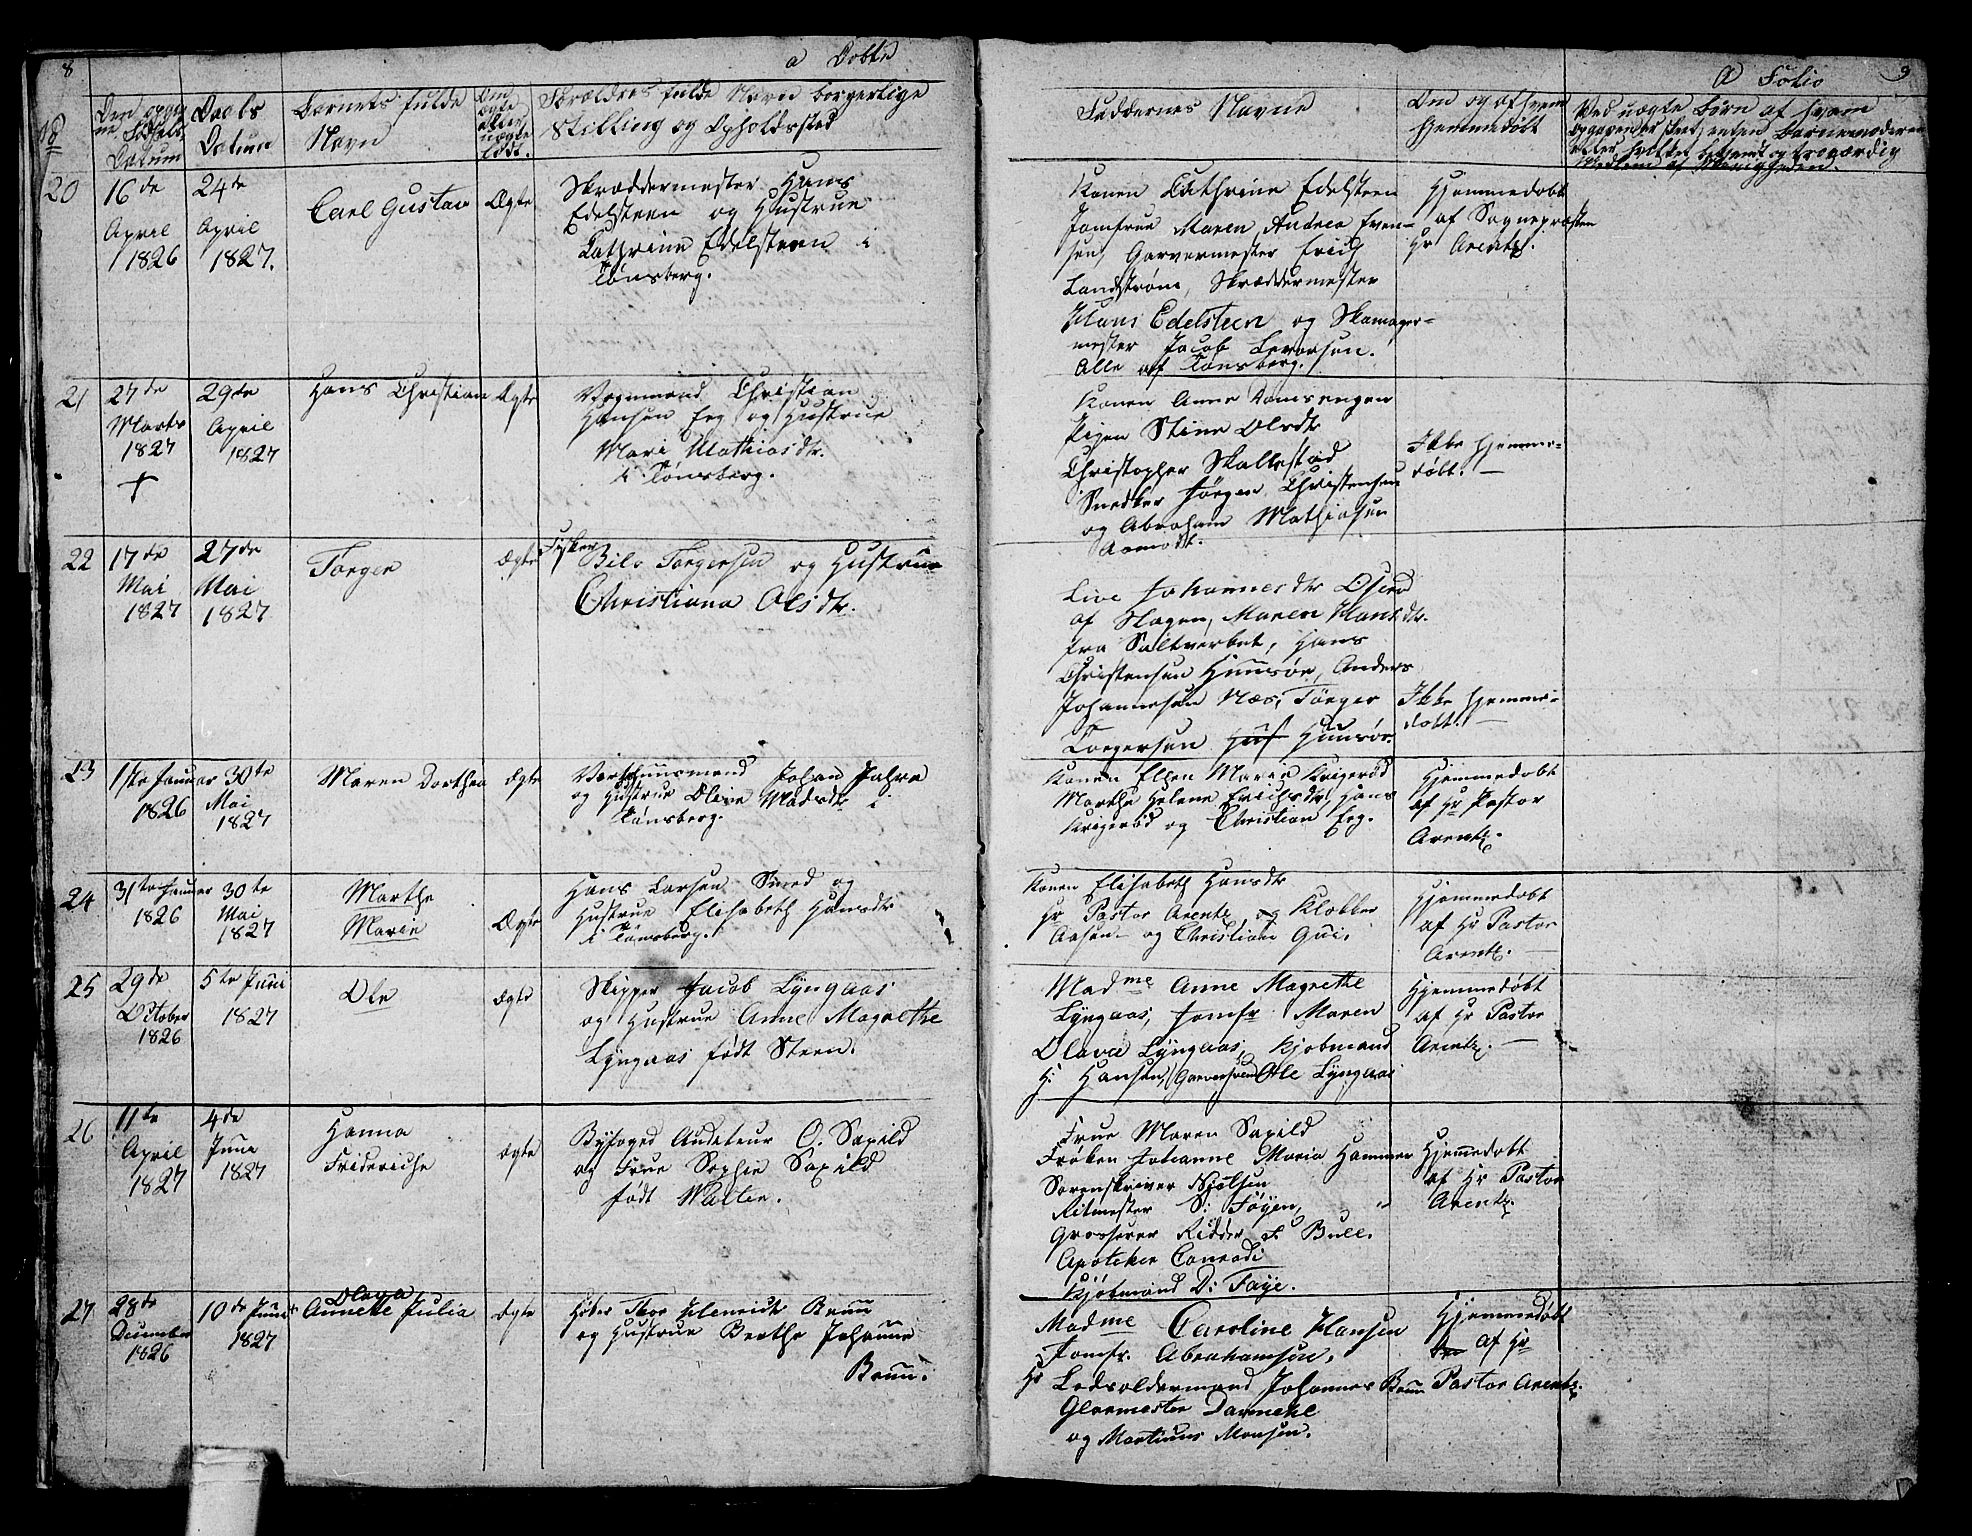 8
a Døbte
No
Døbs Datum
Barnets fulde Navn
Om ægte eller uægte født.
Forældres fulde Navn borgerlige
Stilling og Opholdsstad
20
16de April 1826
24de April 1827.
Carl Gustav
Ægte
Skræddermester Hans
Edelsteen og Hustrue
Cathrine Edelsteen i
Tønsberg.
21
27de Marts 1827
+
29de April 1827
Hans Christian
Ægte
Vognmand Christian
Hansen Eeg og Hustrue
Mari Mathiasdtr.
i Tønsberg.
22
17de Mai 1827
27de Mai 1827
Torger
Ægte
Fisker Nils Torgersen og Hustrue
Christiana Olsdtr.
23
1ste Januar 1826
30te Mai 1827
Maren Dorthea
Ægte
Værthuusmand Johan Jahre
og Hustrue Olive Madsdtr i
Tønsberg.
24
31te Januar 1826
30te Mai 1827
Marthe
Marie
Ægte
Hans Larsen Smed og
Hustrue Elisabeth Hansdtr
i Tønsberg.
25
29de October 1826
5te Juni 1827
Ole
Ægte
Skipper Jacob Lyngaas
og Hustrue Anne Magrethe
Lyngaas født Steen.
26
11te April 1827
4de Juni 1827
Hanna
Frideriche
Ægte
Byfoged Auditeur O. Saxild
og Frue Sophie Saxild
født
27
28de December 1826
10de Juni 1827
Olava
Annette Julia
Ægte
og Hustrue Berthe Johanne
Bruun.
a Folio
9
Faddernes Navne
Om og af hvem
hjemmedøbt
Ved uægte Børn af hvem
Opgaven er skeet, enten Barnemoderen
eller hvilket bekjendt og troværdig
Medlem af Menigheden.
Konen Cathrine Edelsteen
Jomfrue Maren Andrea Even-
sen, Garvermester Erich
Landstrøm, Skræddermester
Hans Edelsteen og Skomager-
mester Jacob Levorsen.
Alle af Tønsberg.
Hjemmedøbt
af Sognepræsten
Hr Arentz.
Konen Anne Ramsengen
Pigen Stine Olsdtr
Christopher Skallestad
Snedker Jørgen Christensen
og Abraham Mathiasen
Ikke hjemme-
døbt. —
Live Johannesdtr
af Slagen, Maren Hansdtr.
fra Saltverket, Hans
Christensen Huusør, Anders
Johannesen Næs, Törger
Torgersen Huusør.
Ikke hjemme-
døbt. —
Konen Ellen Marie Krigerød
Marthe Helene Erichsdtr, Hans
Krigerød og Christian Eeg.
Hjemmedøbt
af Hr Pastor
Arentz.
Konen Elisabeth Hansdtr
Hr Pastor Arentz, og Klokker
Aasen og Christian
Hjemmedøbt
af Hr Pastor
Arentz.
Madme Anne Magrethe
Lyngaas, Jomfr Maren
Olava Lyngaas, Kjøbmand
H: Hansen, Garversvend Ole Lyngaas
Hjemmedøbt
af Hr Pastor
Arentz. —
Frue Maren Saxild
Frøken Johanne Maria Hammer
Sorenskriver
Ritmester S: Föyen,
Grosserer Ridder F: Bull.
Apotheker Conradi
Kjøbmand D: Faye.
Hjemmedøbt
af Hr Pastor
Arentz.
Madme Caroline Hansen
Jomfr. Abrahamsen,
Hr Lodsoldermand Johannes Bruun
Glarmester
og Martinus Monsen.
Hjemmedøbt
af Hr
Pastor Arentz.